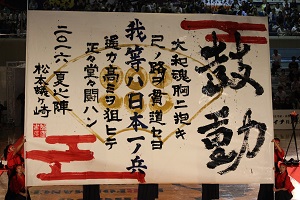 鼓動
大和魂胸ニ抱キ
コノ路ヲ貫道セヨ
我等ハ日本一ノ兵
遥カ高ミヲ狙ヒテ
正々堂々闘ハン
二〇一六夏之陣
松本蟻ヶ崎